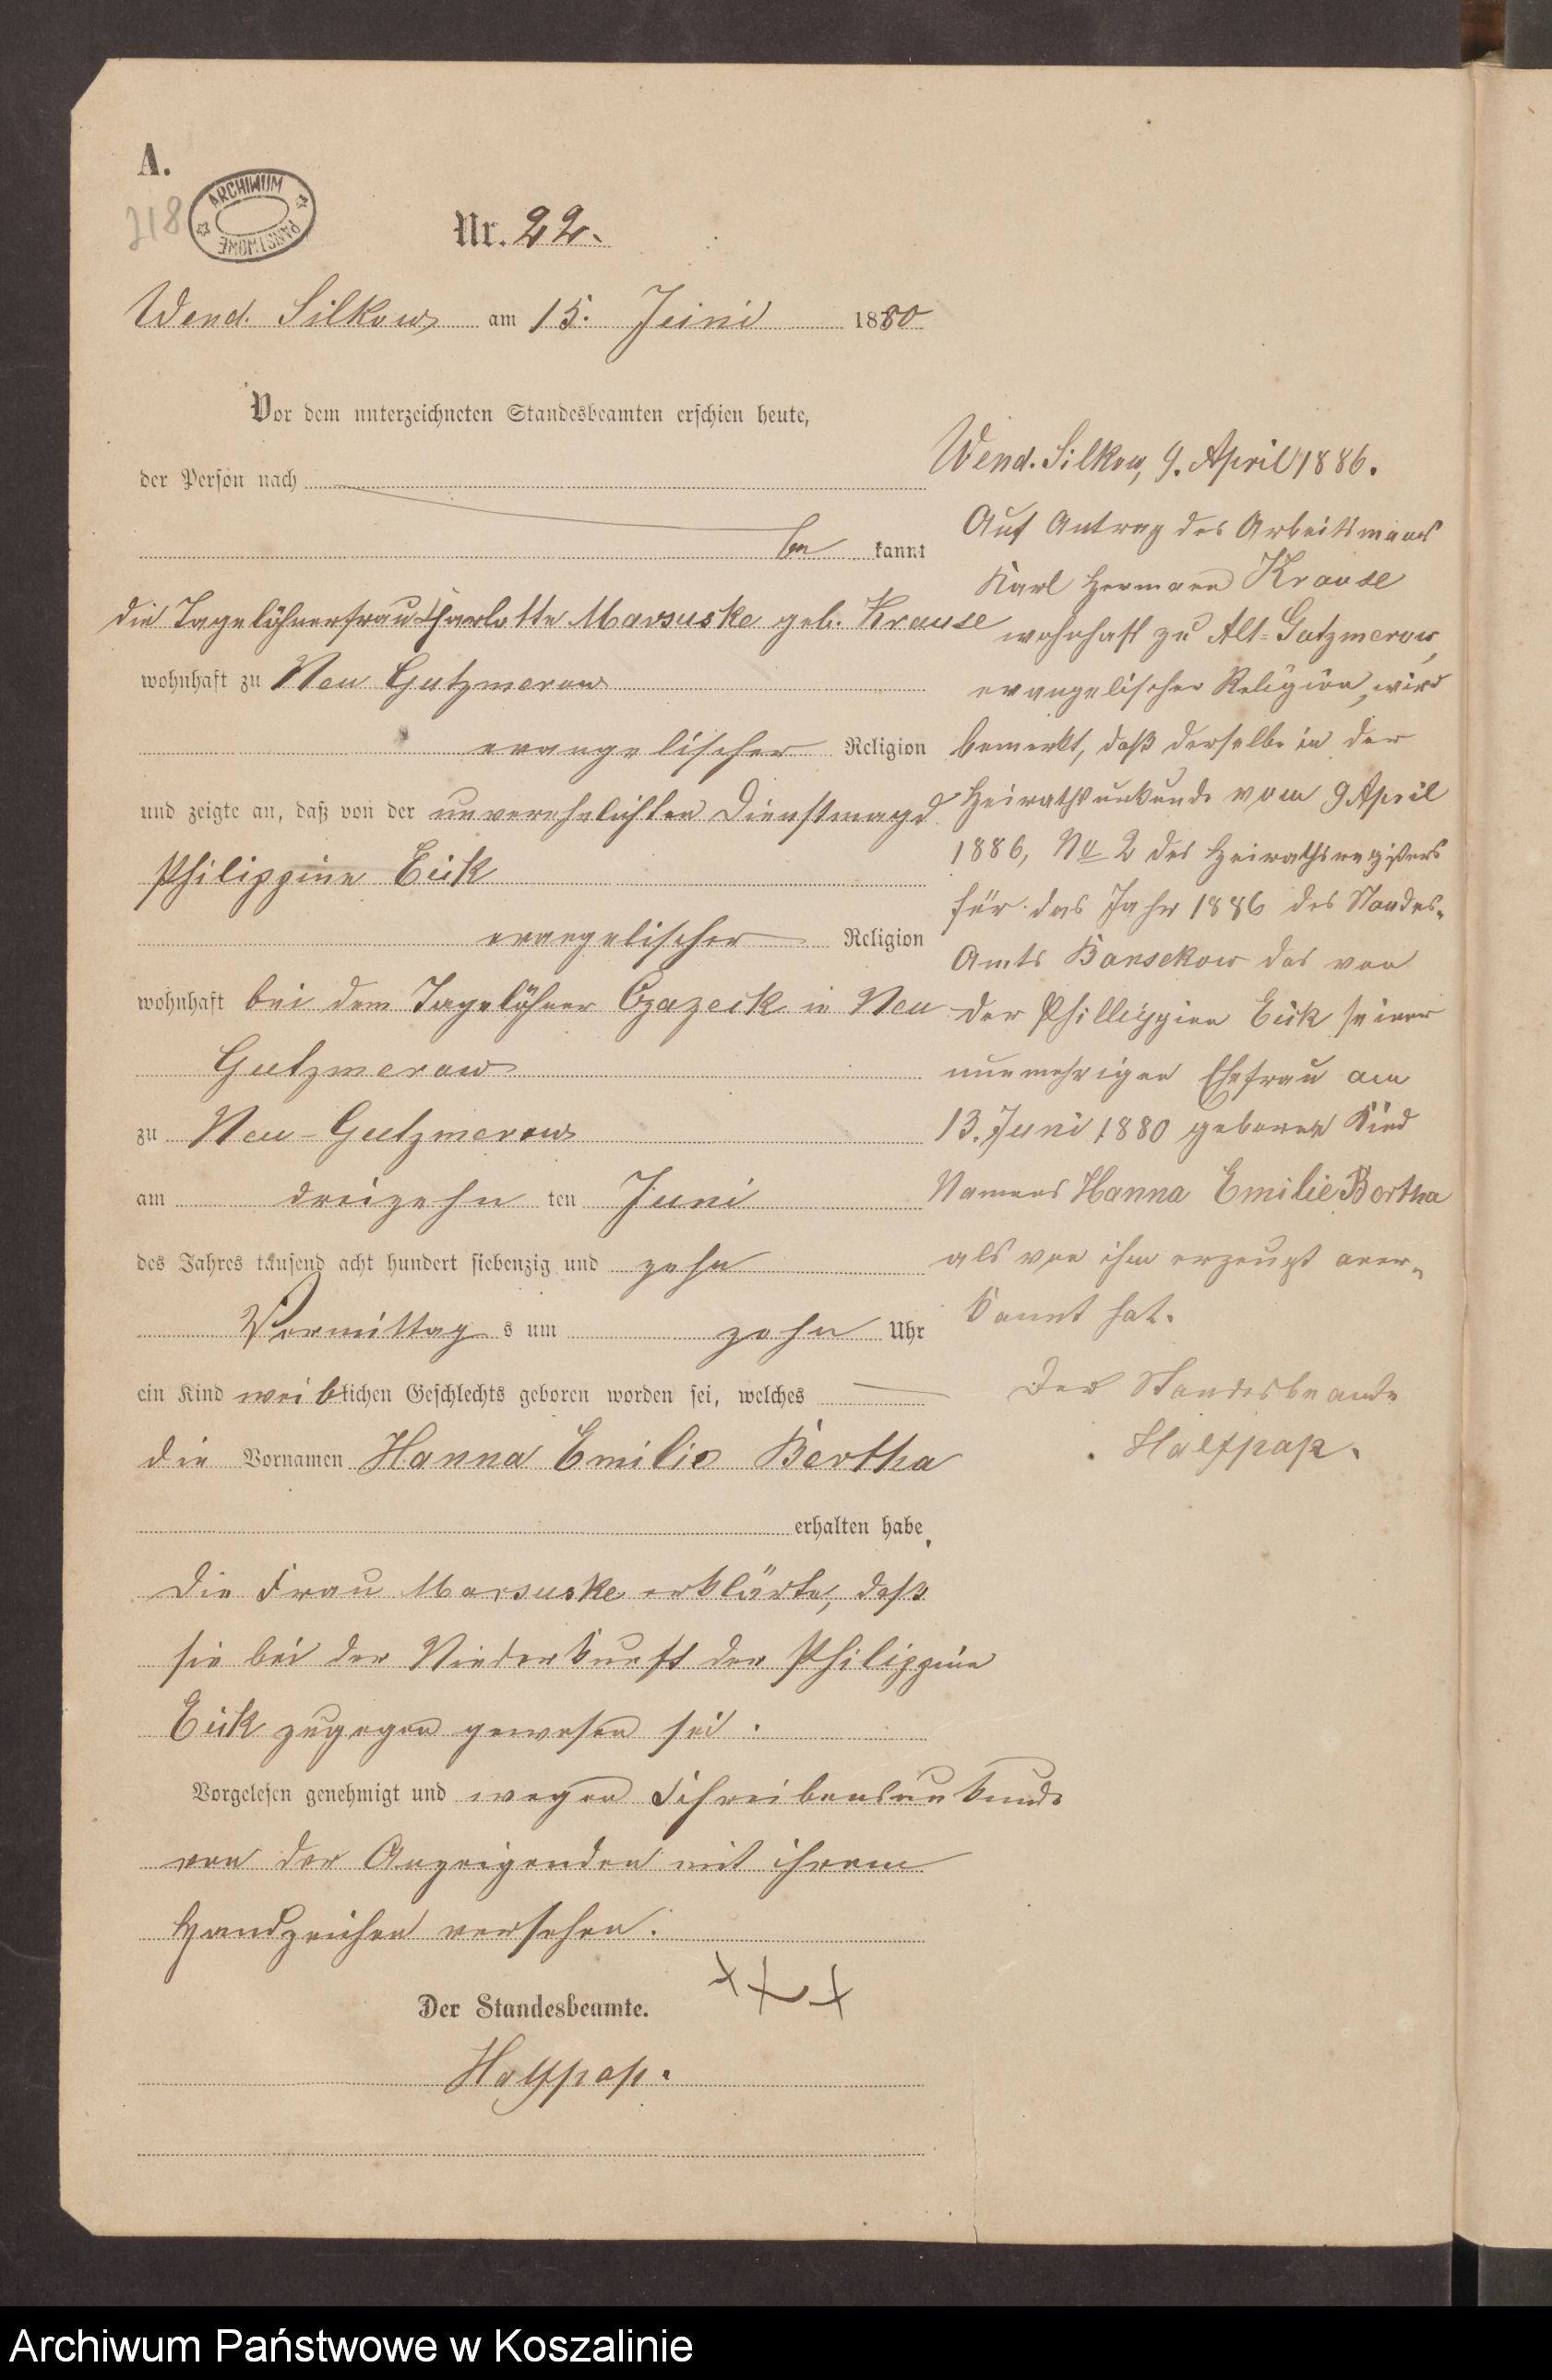 A.
218
ARCHIWUM PAŃSTWOWE
Nr. 22.
Wend. Silkow am 15. Juni 1880
Vor dem unterzeichneten Standesbeamten erschien heute,
der Person nach
be kannt
die Tagelöhnerfrau Charlotte Marsuske geb. Krause
wohnhaft zu Neu Gutzmerow
evangelischer Religion
und zeigte an, daß von der unverehelichten Dienstmagd
Philippine Eick
evangelischer Religion
wohnhaft bei dem Tagelöhner Czazeck in Neu
Gutzmerow
zu Neu-Gutzmerow
am dreizehn ten Juni
des Jahres tausend acht hundert siebenzig und zehn
Vormittag s um zehn Uhr
ein Kind weiblichen Geschlechts geboren worden sei, welches
die Vornamen Hanna Emilie Bertha
erhalten habe.
Die Frau Marsuske erklärte, daß
sie bei der Niederkunft der Philippine
Eick zugegen gewesen sei.
Vorgelesen genehmigt und wegen Schreibensunkunde
von der Anzeigenden mit ihrem
Handzeichen versehen.
+++
Der Standesbeamte.
Halfpap.
Wend. Silkow, 9. April 1886.
Auf Antrag des Arbeitsmanns
Karl Hermann Krause
wohnhaft zu Alt-Gutzmerow,
evangelischer Religion, wird
bemerkt, daß derselbe in der
Heirathsurkunde vom 9 April
1886, No 2 des Heirathsregisters
für das Jahr 1886 des Standes-
Amts Bansekow das von
der Phillippine Eick seiner
nunmehrigen Ehefrau am
13. Juni 1880 geborene Kind
Namens Hanna Emilie Bertha
als von ihm erzeugt aner-
kannt hat.
Der Standesbeamte
Halfpap.
Archiwum Państwowe w Koszalinie